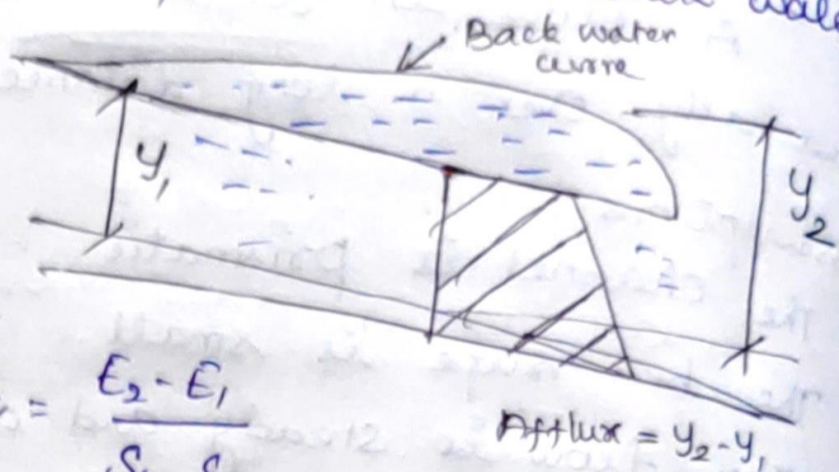 Back water
curve
y₁
y₂
= E₂ - E₁
Afflux = y₂ - y₁